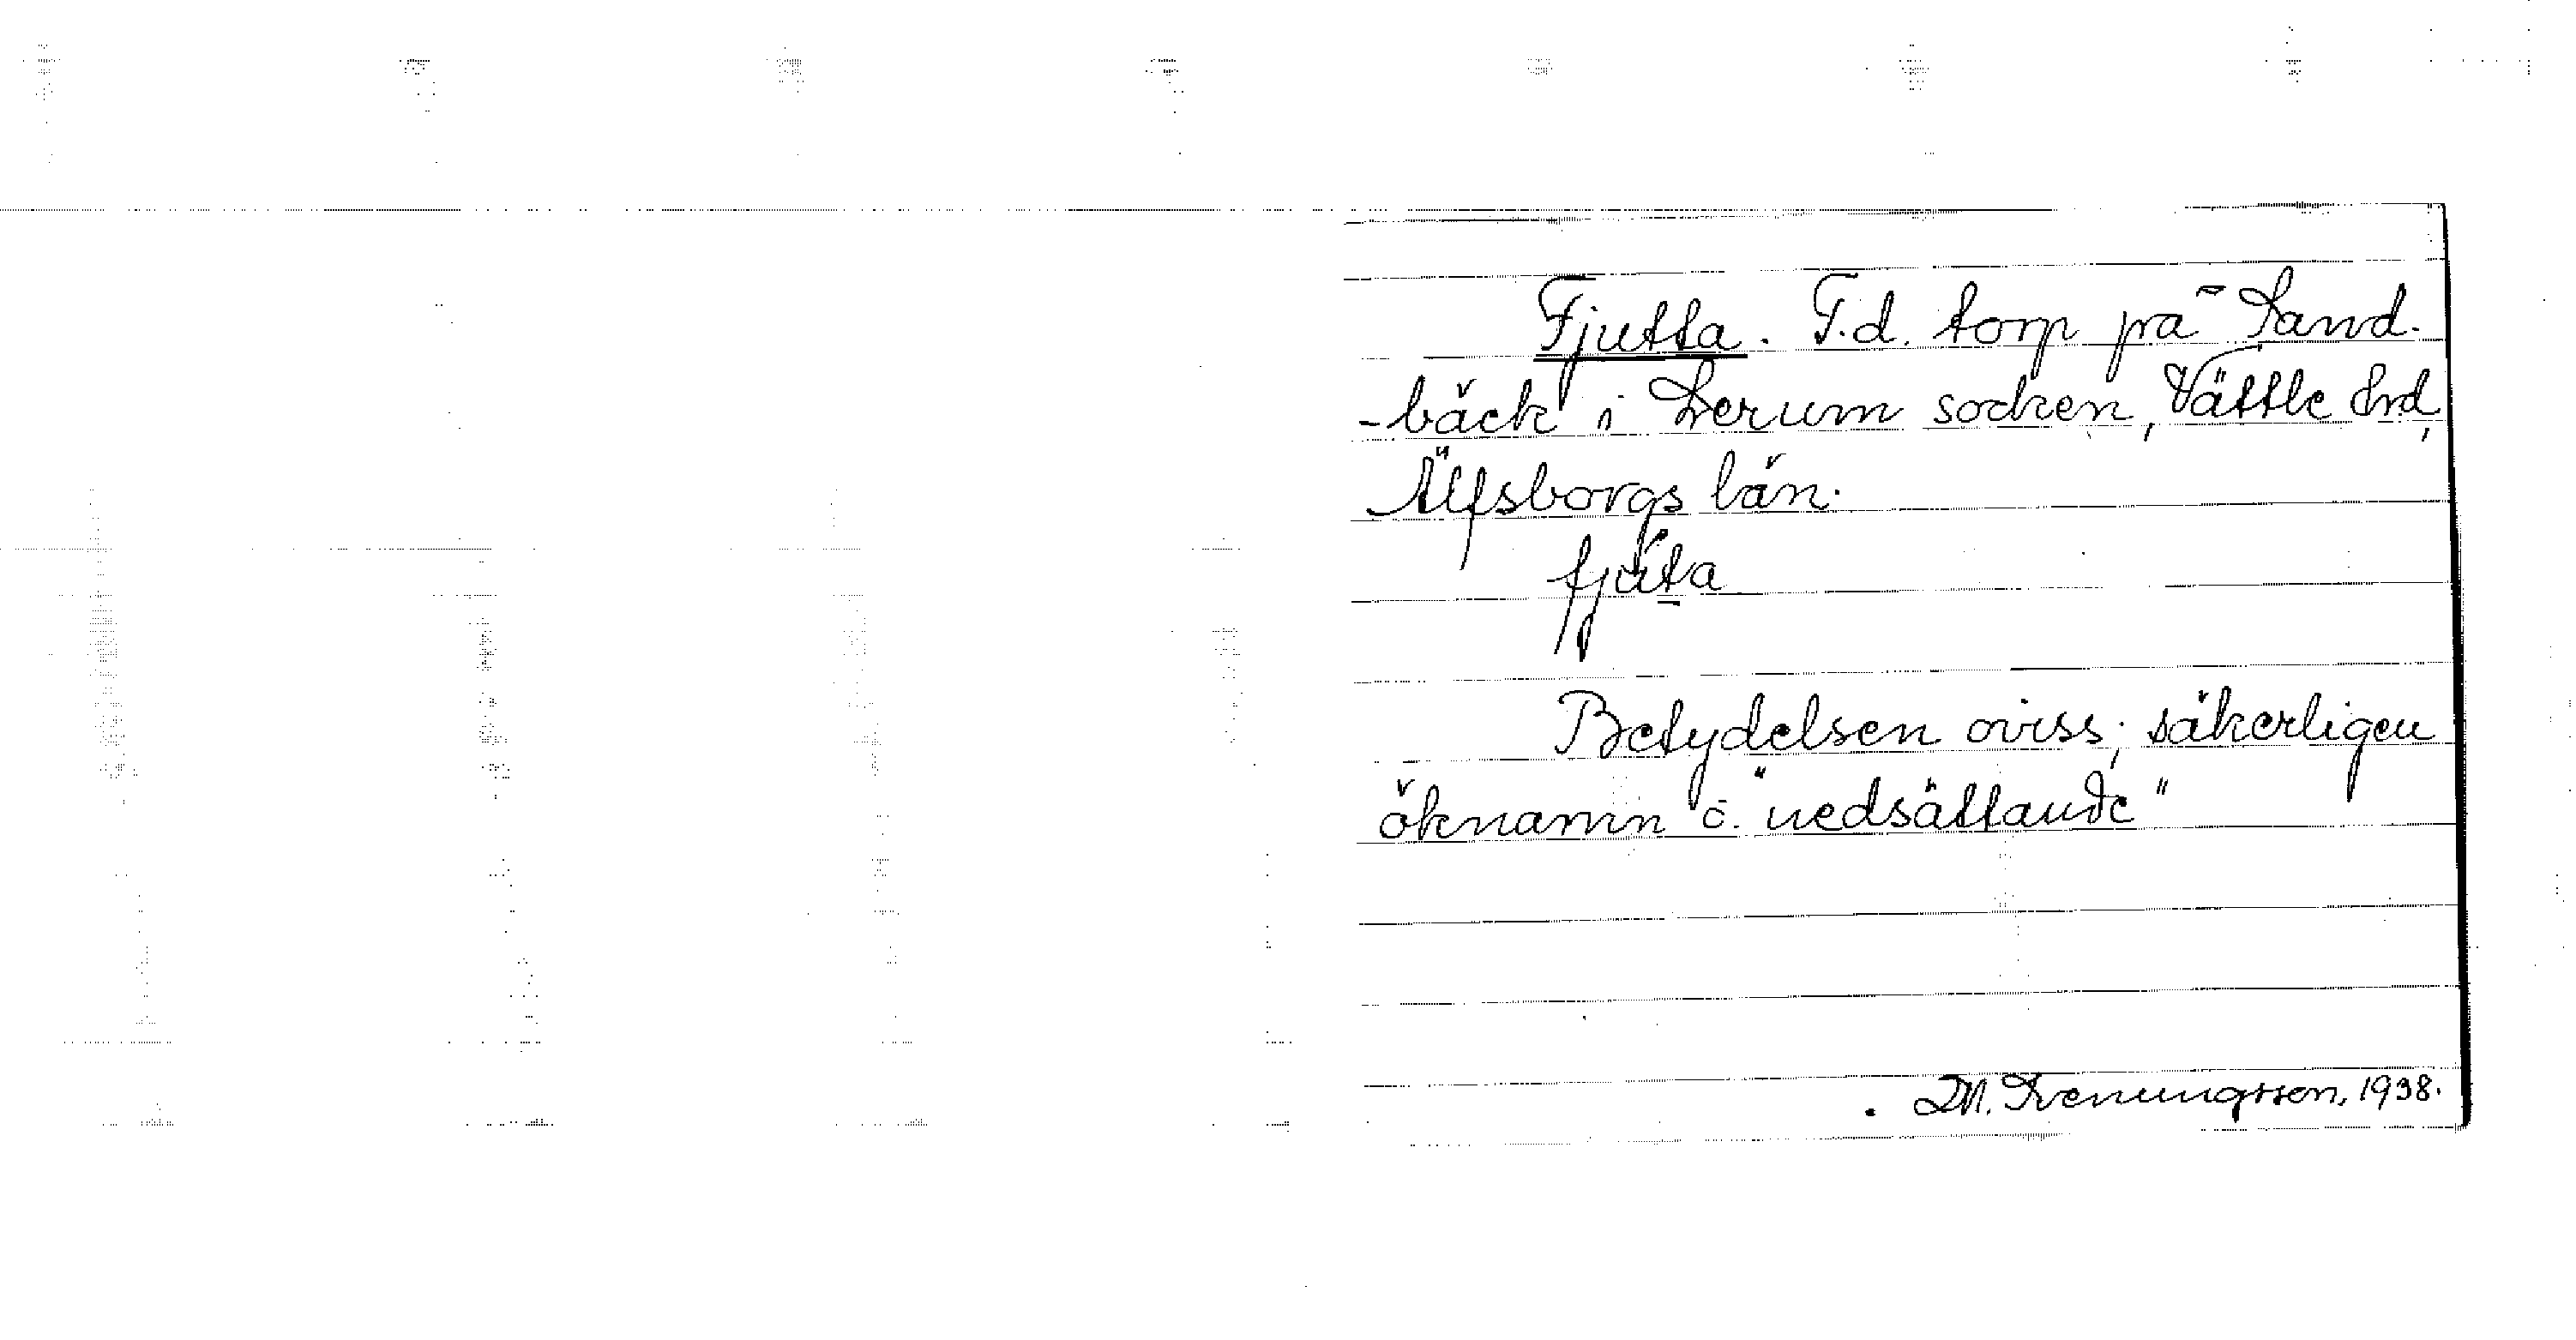 Fjutta. F.d. torp på Sand-
-bäck i Lerum socken, Vättle hrd,
Älfsborgs län.
fjúta
Betydelsen oviss; säkerligen
öknamn o. "nedsättande"
M. Svenungsson, 1938.